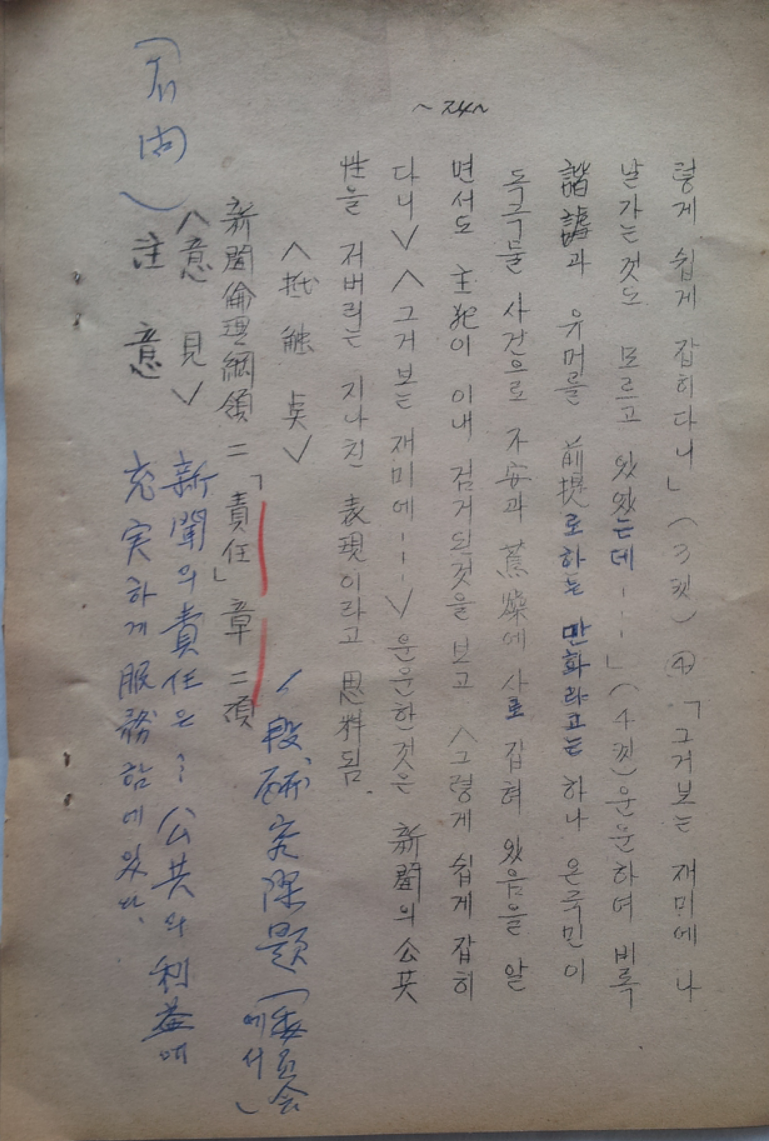 ~24~
렇게 쉽게 잡히다니」(3컷) ④「그거보는 재미에 나
날가는것도 모르고 있었는데---」(4컷)운운하여 비록
諧謔과 유머를 前提로하는 만화라고는 하나 온국민이
독극물 사건으로 不安과 蕉燥에 사로잡혀 있음을 알
면서도 主犯이 이내 검거된것을 보고 <그렇게 쉽게 잡히
다니> <그거 보는 재미에---> 운운한것은 新聞의 公共
性을 저버리는 지나친 表現이라고 思料됨.
<抵触点>
新聞倫理綱領 二「責任」章 二項
段 研究課題 (委員会
에서)
<意見> 新聞의 責任은 : 公共의 利益에
注意 充実하게 服務함에 있다.